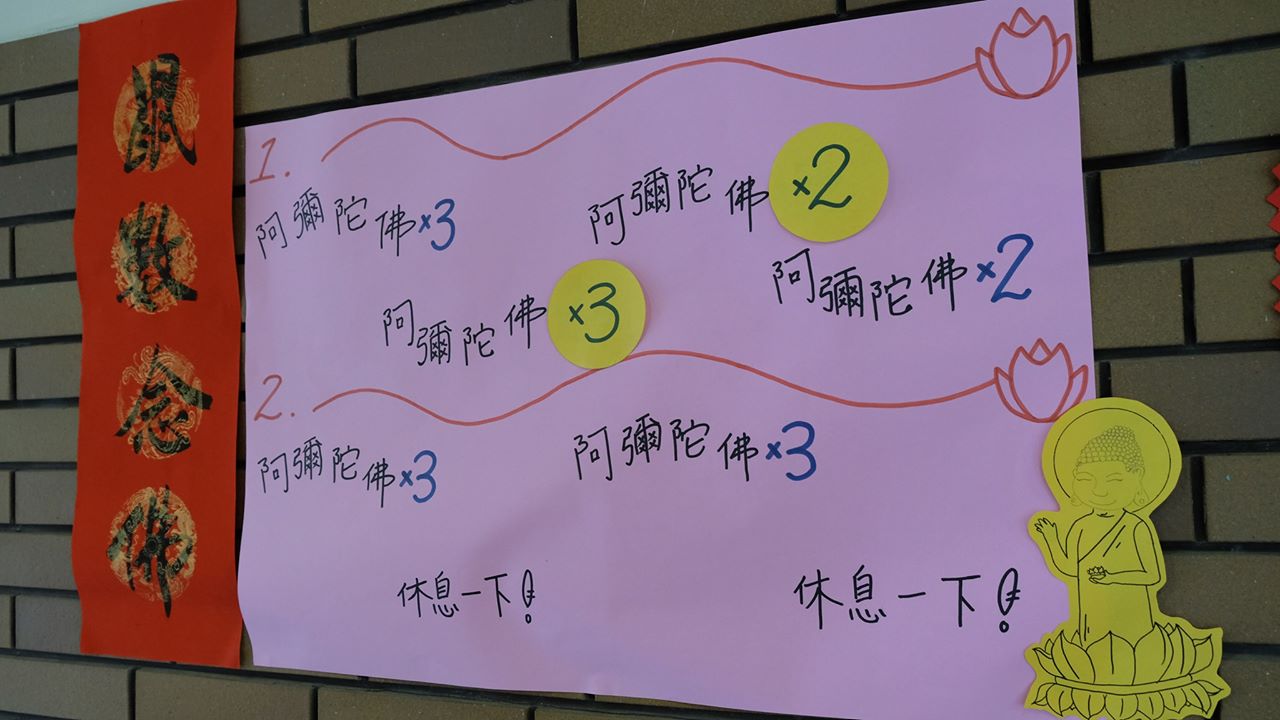 鼠數念佛
1.
阿彌陀佛×3
阿彌陀佛×2
阿彌陀佛×3
阿彌陀佛×2
2.
阿彌陀佛×3
阿彌陀佛×3
休息一下!
休息一下!